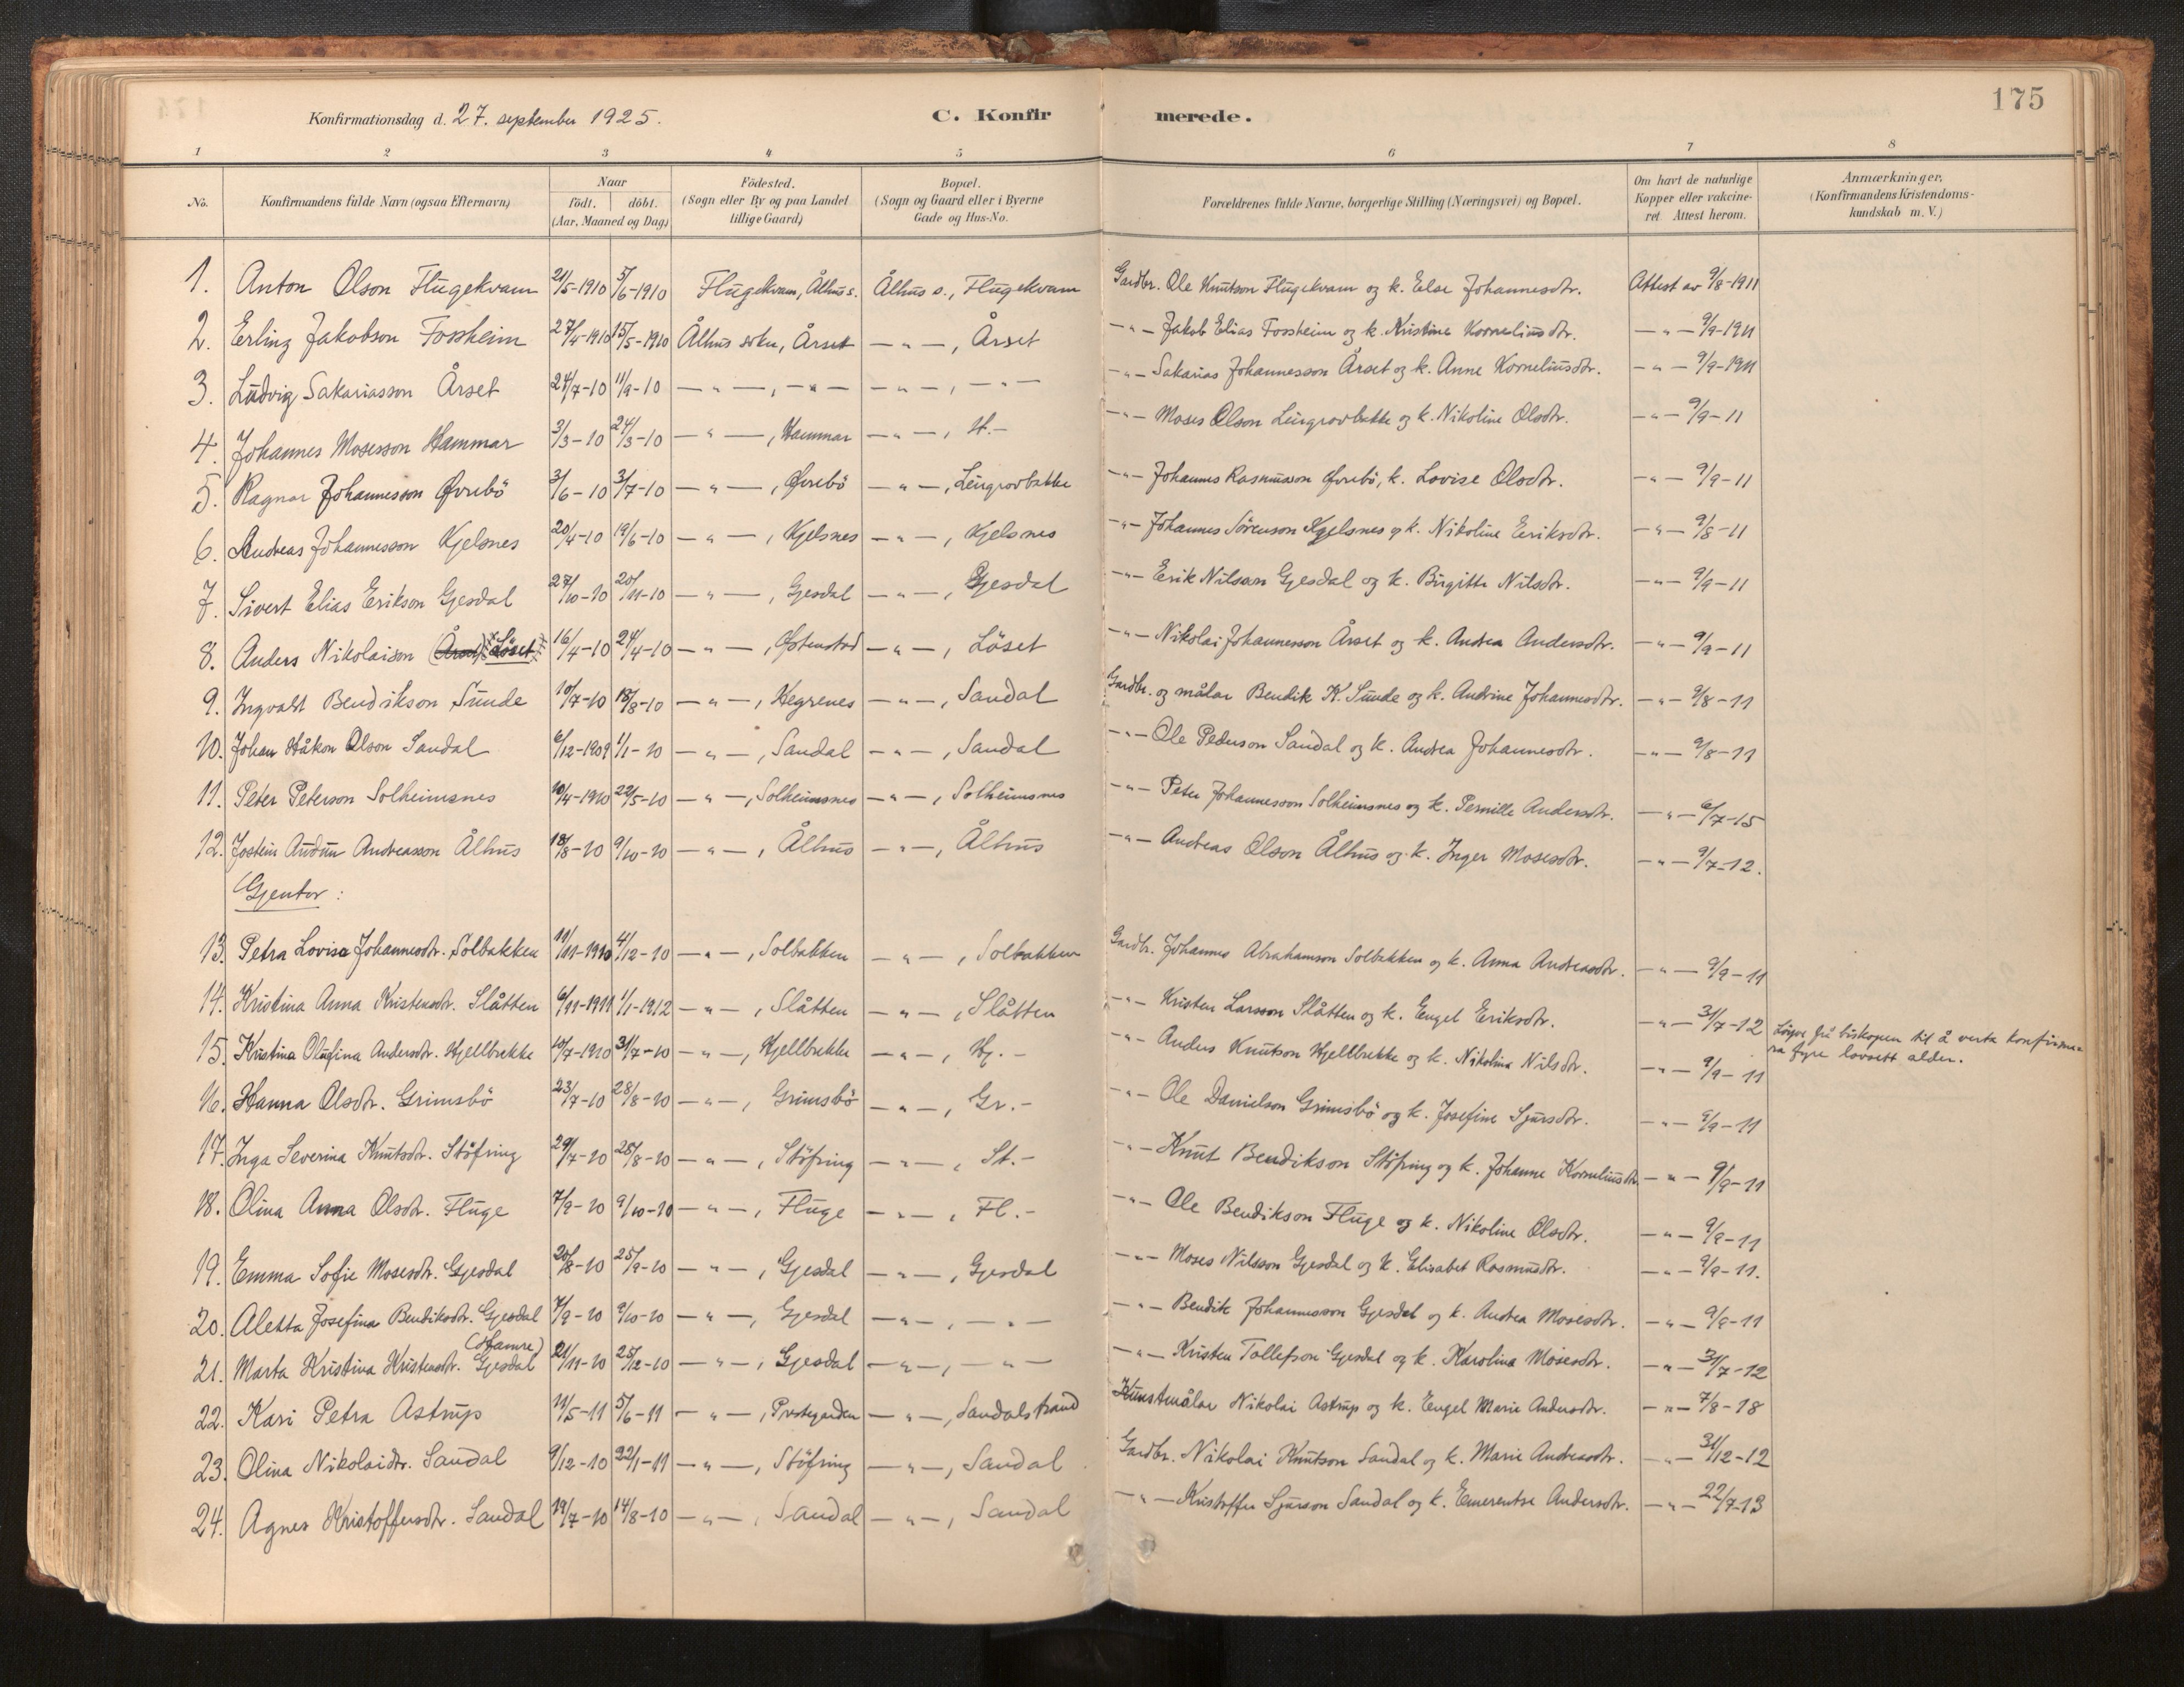 175
Konfirmationsdag d. 27. september 1925. C. Konfir merede.
1 2 3 4 5 6 7 8
No. Konfirmandens fulde Navn (ogsaa Efternavn) Naar födt. döbt. (Aar, Maaned og Dag) Födested. (Sogn eller By og paa Landet tillige Gaard) Bopæl. (Sogn og Gaard eller i Byerne Gade og Hus-No. Forældrenes fulde Navne, borgerlige Stilling (Næringsvei) og Bopæl. Om havt de naturlige Kopper eller vakcineret. Attest herom. Anmærkninger. (Konfirmandens Kristendomskundskab m. V.)
1. Anton Olson Flugekvam 21/5-1910 5/6-1910 Flugekvam, Ålhus s. Ålhus s., Flugekvam Gardbr. Ole Knutson Flugekvam og k. Else Johannesdtr. Attest av 9/8-1911
2. Erling Jakobson Fossheim 27/4-1910 15/5-1910 Ålhus sokn, Årset — " —, Årset — " — Jakob Elias Fossheim og k. Kristine Korneliusdtr. — " — 9/9-1911
3. Ludvig Sakariasson Årset 24/7-10 11/9-10 — " —, — " — — " —, — " — — " — Sakarias Johannesson Årset og k. Anne Korneliusdtr. — " — 9/9-1911
4. Johannes Mosesson Hammar 3/3-10 24/3-10 — " —, Hammar — " —, H.- — " — Moses Olson Leingrovbakke og k. Nikoline Olsdtr. — " — 9/9-11
5. Ragnar Johannesson Øvrebö 3/6-10 3/7-10 — " —, Øvrebö — " —, Leingrovbakke — " — Johannes Rasmusson Øvrebö, k. Lovise Olsdtr. — " — 9/9-11
6. Andreas Johannesson Kjelsnes 20/4-10 19/6-10 — " —, Kjelsnes — " —, Kjelsnes — " — Johannes Sörenson Kjelsnes og k. Nikoline Eriksdtr. — " — 9/8-11
7. Sivert Elias Erikson Gjesdal 27/10-10 20/11-10 — " —, Gjesdal — " —, Gjesdal — " — Erik Nilsson Gjesdal og k. Birgitte Nilsdtr. — " — 9/9-11
8. Anders Nikolaison (Årset) Löset 16/4-10 24/4-10 — " —, Østenstad — " —, Löset — " — Nikolai Johannesson Årset og k. Andrea Andersdtr. — " — 9/9-11
9. Ingvald Bendikson Sunde 10/7-10 18/8-10 — " —, Hegrenes — " —, Sandal Gardbr. og målar Bendik K. Sunde og k. Andrine Johannesdtr. — " — 9/8-11
10. Johan Håkon Olson Sandal 6/12-1909 1/1-10 — " —, Sandal — " —, Sandal — " — Ole Pederson Sandal og k. Andrea Johannesdtr. — " — 9/8-11
11. Peter Peterson Solheimsnes 10/4-1910 22/5-10 — " —, Solheimsnes — " —, Solheimsnes — " — Peter Johannesson Solheimsnes og k. Pernille Andersdtr. — " — 6/7-15
12. Jostein Audun Andreasson Ålhus 18/8-10 9/10-10 — " —, Ålhus — " —, Ålhus — " — Andreas Olson Ålhus og k. Inger Mosesdtr. — " — 9/7-12.
Gjentor:
13. Petra Lovisa Johannesdtr. Solbakken 11/11-1910 4/12-10 — " —, Solbakken — " —, Solbakken Gardbr. Johannes Abrahamson Solbakken og k. Anna Andreasdtr. — " — 9/9-11
14. Kristina Anna Kristensdtr. Slåtten 6/11-1911 1/1-1912 — " —, Slåtten — " —, Slåtten — " — Kristen Larsson Slåtten og k. Engel Eriksdtr. — " — 31/7-12 Löyve frå biskopen til å verta konfirmera fyre lovsett alder.
15. Kristina Olufina Andersdtr. Hjellbrekke 10/7-1910 31/7-10 — " —, Hjellbrekke — " —, Hj.- — " — Anders Knutson Hjellbrekke og k. Nikolina Nilsdtr. — " — 9/9-11
16. Hanna Olsdtr. Grimsbö 23/7-10 28/8-10 — " —, Grimsbö — " —, Gr.- — " — Ole Danielson Grimsbö og k. Josefine Sjursdtr. — " — 9/9-11
17. Inga Severina Knutsdtr. Stöfring 29/7-10 28/8-10 — " —, Stöfring — " —, St.- — " — Knut Bendikson Stöfring og k. Johanne Korneliusdtr. — " — 9/9-11
18. Olina Anna Olsdtr. Fluge 7/9-10 9/10-10 — " —, Fluge — " —, Fl.- — " — Ole Bendikson Fluge og k. Nikoline Olsdtr. — " — 9/9-11
19. Emma Sofie Mosesdtr. Gjesdal 20/8-10 25/9-10 — " —, Gjesdal — " —, Gjesdal — " — Moses Nilsson Gjesdal og k. Elisabet Rasmusdtr. — " — 9/9-11.
20. Aletta Josefina Bendiksdtr. Gjesdal 7/9-10 9/10-10 — " —, Gjesdal — " —, — " — — " — Bendik Johannesson Gjesdal og k. Andrea Mosesdtr. — " — 9/9-11
21. Marta Kristina Kristensdtr. Gjesdal (Hamre) 21/11-10 25/12-10 — " —, Gjesdal — " —, — " — — " — Kristen Tollefson Gjesdal og k. Karolina Mosesdtr. — " — 31/7-12
22. Kari Petra Astrup 11/5-11 5/6-11 — " —, Prestegarden — " —, Sandalstrand Kunstmålar Nikolai Astrup og k. Engel Marie Andersdtr. — " — 7/8-18
23. Olina Nikolaidtr. Sandal 9/12-10 22/1-11 — " —, Stöfring — " —, Sandal Gardbr. Nikolai Knutson Sandal og k. Marie Andreasdtr. — " — 31/12-12
24. Agnes Kristoffersdtr. Sandal 19/7-10 14/8-10 — " —, Sandal — " —, Sandal — " — Kristoffer Sjurson Sandal og k. Emerentse Andersdtr. — " — 22/7-13